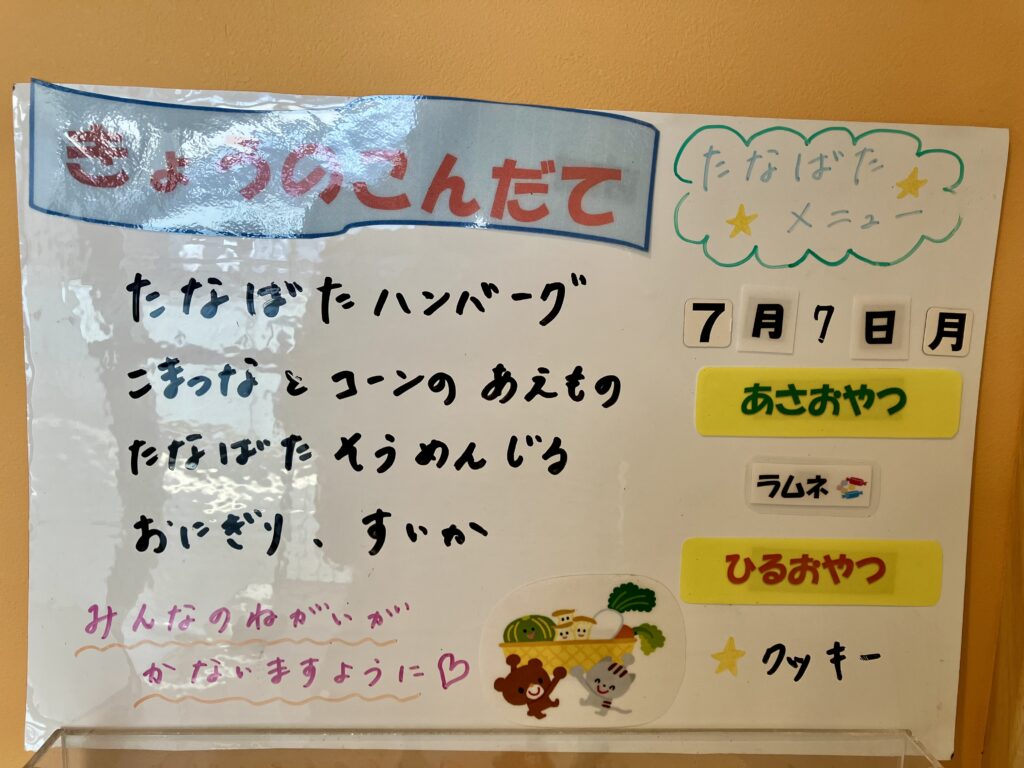 きょうのこんだて
たなばたハンバーグ
こまつなとコーンのあえもの
たなばたそうめんじる
おにぎり、すいか
みんなのねがいが
かないますように♡
たなばた
メニュー
7月7日月
あさおやつ
ラムネ
ひるおやつ
クッキー